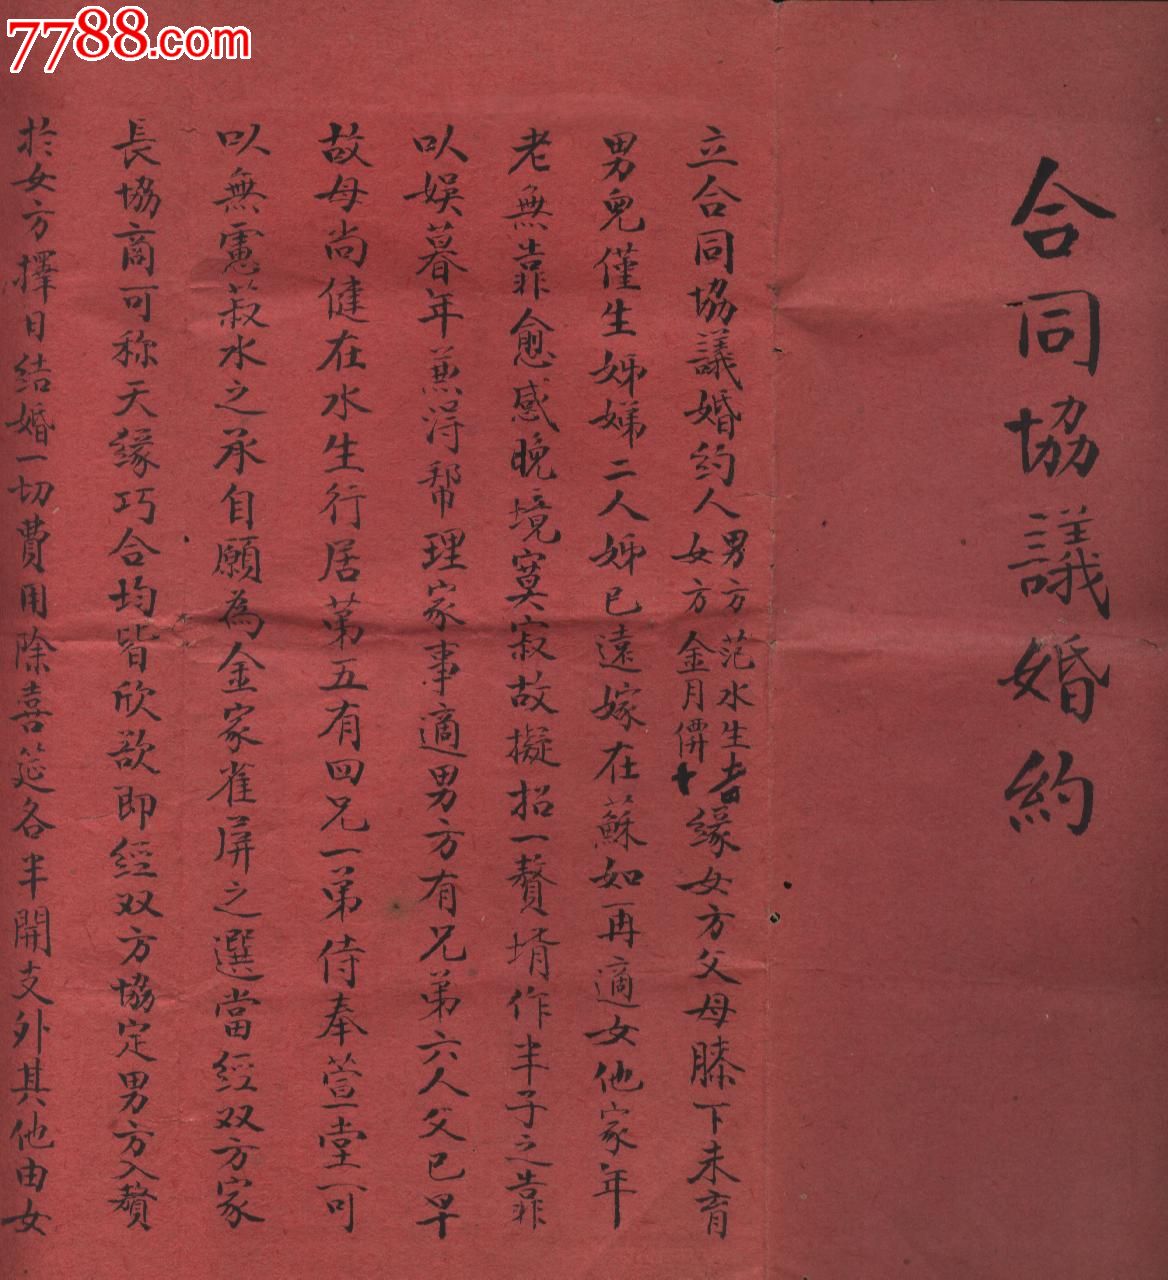 7788.com
合同協議婚約
立合同協議婚約人男方范水生女方金月併十者緣女方父母膝下未育
男兒僅生姊娣二人姊已遠嫁在蘇如再適女他家年
老無靠愈感晚境寞寂故擬招一贅壻作半子之靠
以娛暮年兼淂幫理家事適男方有兄弟六人父已早
故母尚健在水生行居苐五有四兄一弟侍奉萱堂可
以無慮菽水之承自願為金家雀屏之選當經双方家
長協商可称天緣巧合均皆欣欲即經双方協定男方入贅
於女方擇日结婚一切費用除喜筵各半開支外其他由女